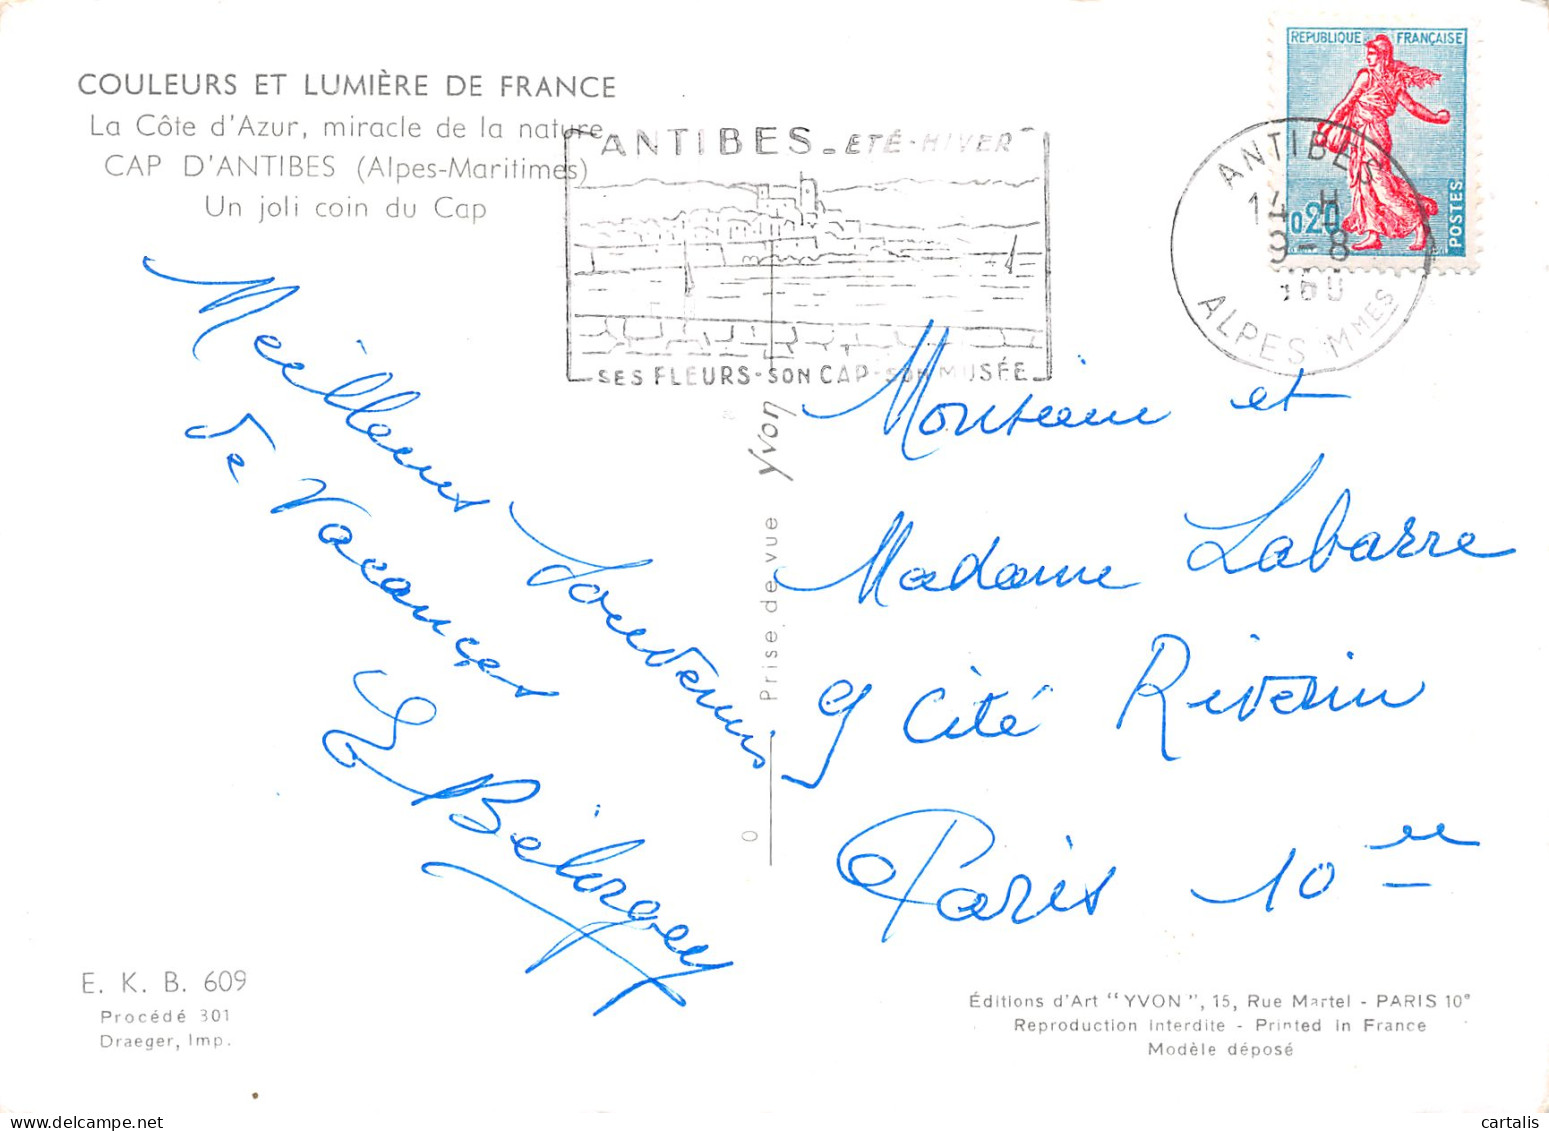 COULEURS ET LUMIÈRE DE FRANCE
La Côte d'Azur, miracle de la nature
CAP D'ANTIBES (Alpes-Maritimes)
Un joli coin du Cap
ANTIBES - ETÉ - HIVER
SES FLEURS - SON CAP - SON MUSÉE
REPUBLIQUE FRANÇAISE
0,20
POSTES
ANTIBES
14 H
9-8
1960
ALPES MMES
Meilleurs Souvenirs
de Vacances
Monsieur et
Madame Labarre
9 Cité Riverin
Paris 10
Prise de vue Yvon
E. K. B. 609
Procédé 301
Draeger, Imp.
Éditions d'Art "YVON", 15, Rue Martel - PARIS 10e
Reproduction interdite - Printed in France
Modèle déposé
cartalis